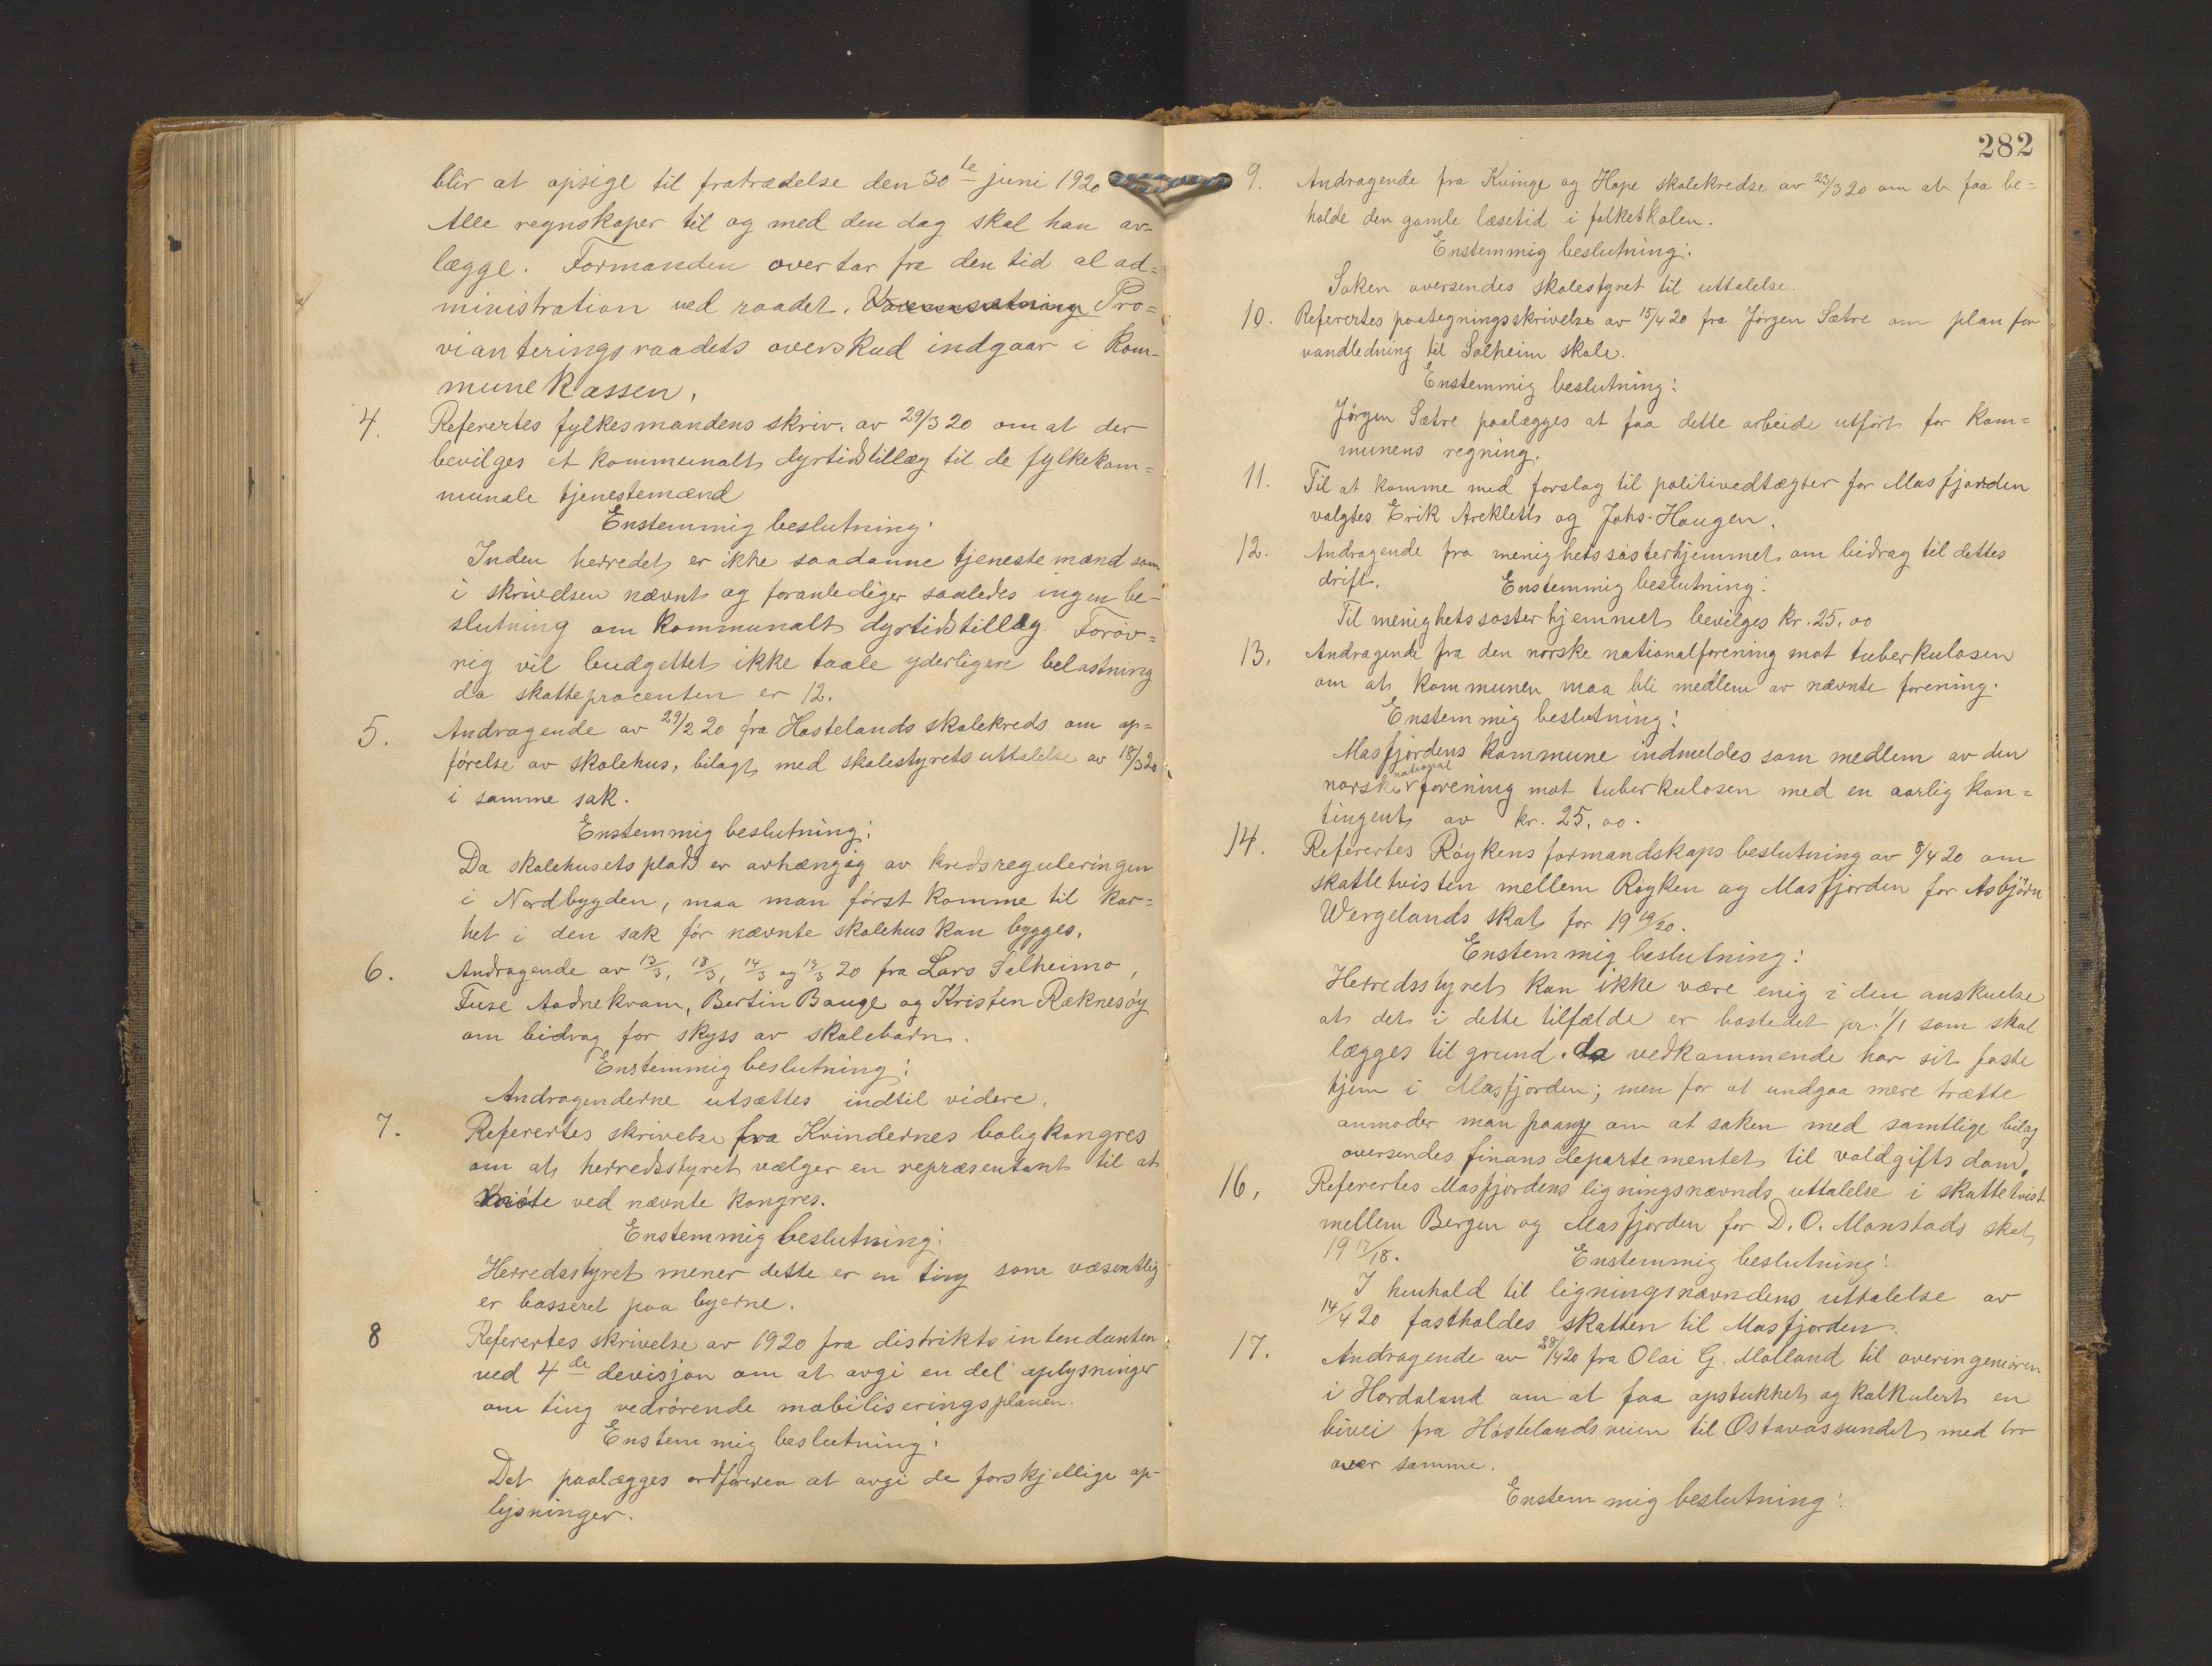 blir at opsige til fratrædelse den 30te juni 1920
Alle regnskaper til og med den dag skal han av-
lægge. Formanden overtar fra den tid al ad=
ministration ved raadet. Pro=
vianteringsraadets overskud indgaar i kom-
munekassen.
4. Referertes fylkesmandens skriv. av 29/3 20 om at der
bevilges et kommunalt dyrtidstillæg til de fylkekom=
munale tjenestemænd
Enstemmig beslutning:
Inden herredet er ikke saadanne tjenestemænd som
i skrivelsen nævnt og foranlediger saaledes ingen be-
slutning om kommunalt dyrtidstillæg. Forøv=
rig vil budgettet ikke taale yderligere belastning
da skatteprocenten er 12.
5. Andragende av 29/2 20 fra Hostelands skolekreds om op=
førelse av skolehus, bilagt med skolestyrets uttalelse av 18/3 20
i samme sak.
Enstemmig beslutning:
Da skolehusets plads er avhængig av kredsreguleringen
i Nordbygden, maa man først komme til kar=
het i den sak før nævnte skolehus kan bygges.
6. Andragende av 13/3, 18/3, 14/3 og 13/3 20 fra Lars Solheimo,
Fuse Aadnekvam, Bertin Bauge og Kristen Ræknesøy
om bidrag for skyss av skolebarn.
Enstemmig beslutning:
Andragenderne utsættes indtil videre.
7. Referertes skrivelse fra Kvindernes boligkongres
om at herredsstyret vælger en repræsentant til at
møte ved nævnte kongres.
Enstemmig beslutning:
Herredsstyret mener dette er en ting som væsentlig
er basseret paa byerne.
8 Referertes skrivelse av 1920 fra distriktsintendanten
ved 4de devisjon om at avgi en del oplysninger
om ting vedrørende mobiliseringsplanen.
Enstemmig beslutning:
Det paalægges ordføreren at avgi de forskjellige op-
lysninger.
282
9. Andragende fra Kvinge og Hope skolekredse av 23/3 20 om at faa be=
holde den gamle læsetid i folkeskolen.
Enstemmig beslutning:
Saken oversendes skolestyret til uttalelse.
10. Referertes paategningsskrivelse av 15/4 20 fra Jørgen Sætre om plan for
vandledning til Solheim skole.
Enstemmig beslutning:
Jørgen Sætre paalægges at faa dette arbeide utført for kom=
munens regning.
11. Til at komme med forslag til politivedtægter for Masfjorden
valgtes Erik Areklett og Johs. Haugen.
12. Andragende fra menighetssøsterhjemmet om bidrag til dettes
drift. Enstemmig beslutning:
Til menighetssøsterhjemmet bevilges kr. 25,00
13. Andragende fra den norske nationalforening mot tuberkulosen
om at kommunen maa bli medlem av nævnte forening.
Enstemmig beslutning:
Masfjordens kommune indmeldes som medlem av den
norske nationalforening mot tuberkulosen med en aarlig kon=
tingent av kr. 25,00.
14. Referertes Røykens formandskaps beslutning av 8/4 20 om
skattetvisten mellem Røyken og Masfjorden for Asbjørn
Wergelands skat for 1919/20.
Enstemmig beslutning:
Herredsstyret kan ikke være enig i den anskuelse
at det i dette tilfælde er bostedet pr. 1/1 som skal
lægges til grund. da vedkommende har sit faste
hjem i Masfjorden; men for at undgaa mere trætte
anmoder man paany om at saken med samtlige bilag
oversendes finansdepartementet til voldgiftsdom.
16. Referertes Masfjordens ligningsnævnds uttalelse i skattetvist
mellem Bergen og Masfjorden for D. O. Monstads skat
1917/18. Enstemmig beslutning:
I henhold til ligningsnævndens uttalelse av
14/4 20 fastholdes skatten til Masfjorden.
17. Andragende av 28/4 20 fra Olai G. Molland til overingeniøren
i Hordaland om at faa opstukket og kalkulert en
bivei fra Høstelandsveien til Ostavassundet med bro
over samme.
Enstemmig beslutning: